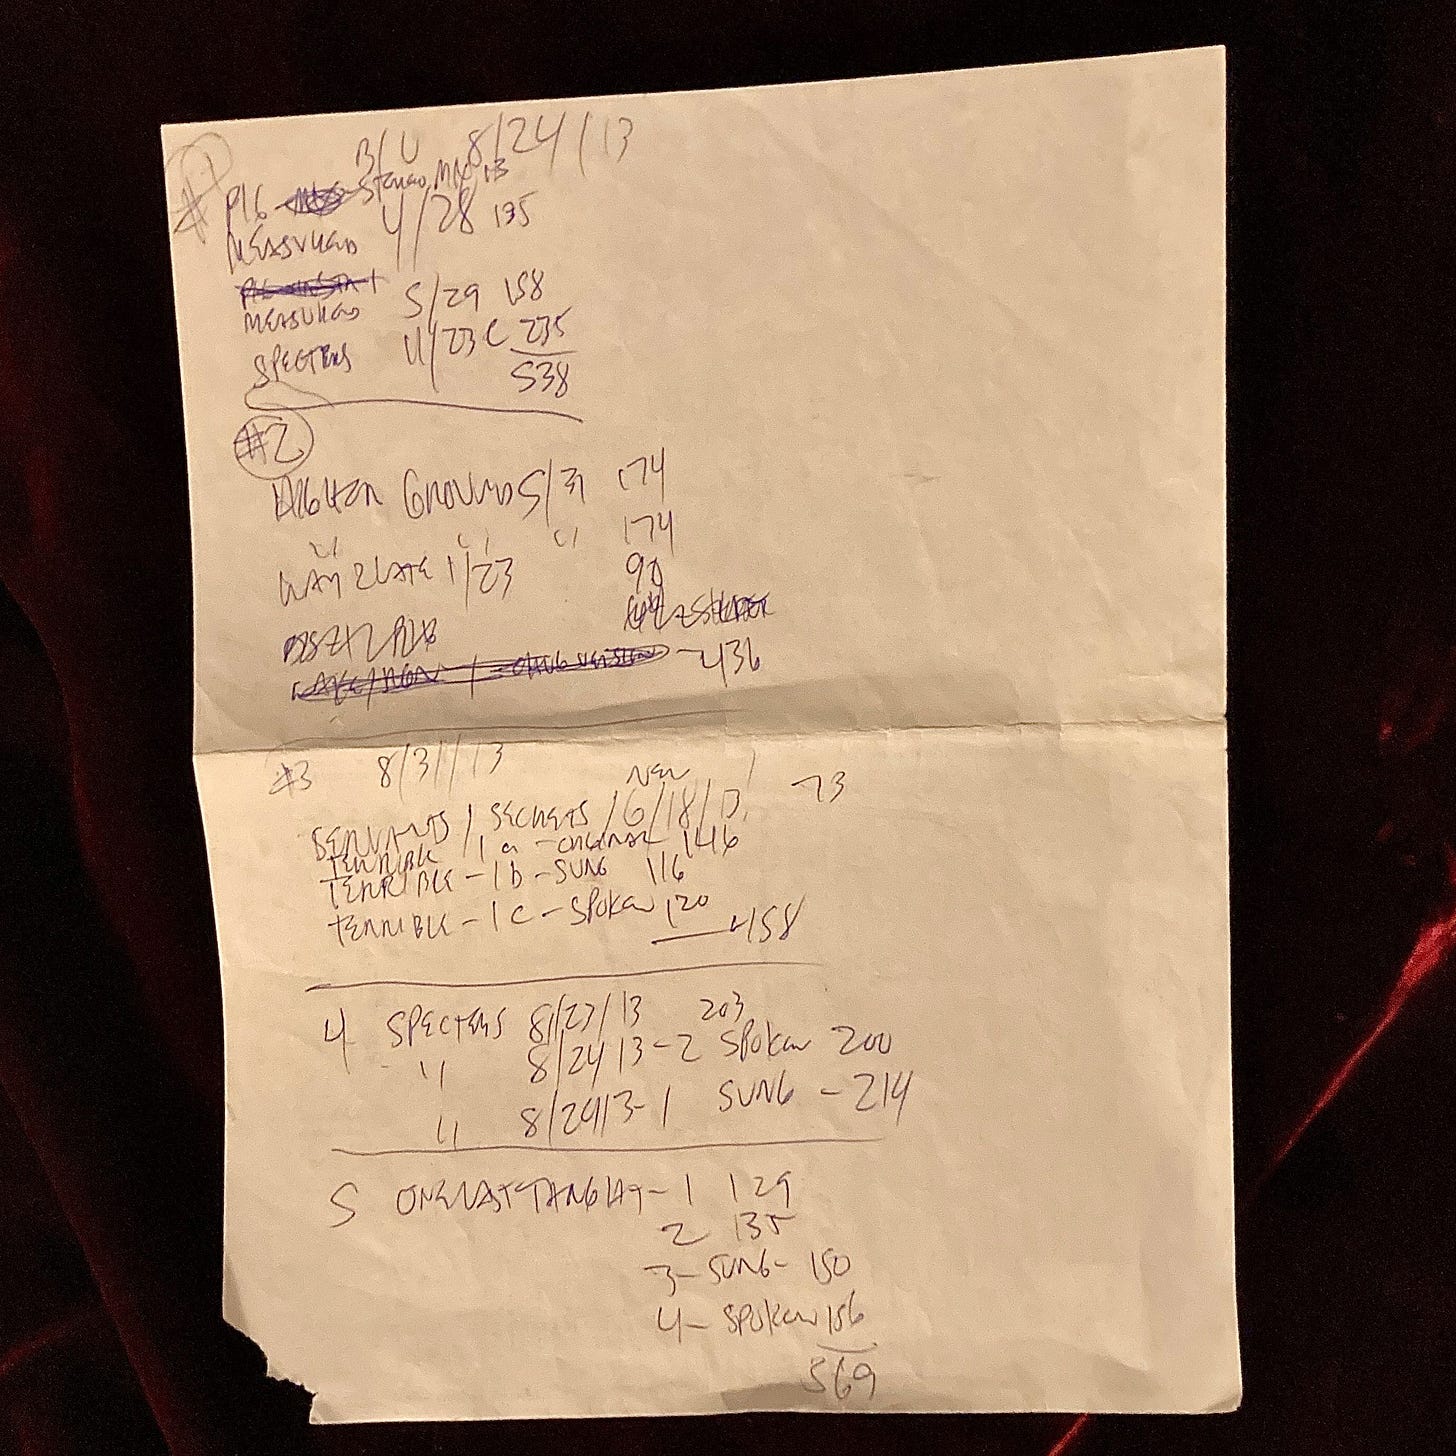 #1 B/U 8/24/13
PIG STEREO MIX 113
MEASURED 4/28 135
MEASURED 5/29 158
SPECTERS 11/23 C 235
538
#2
HIGHER GROUND 5/31 174
" " " 174
WAY 2 LATE 1/23 90
436
#3 8/31/13
NEW
SERVANTS / SECRETS / 6/18/13 73
TERRIBLE 1a - ORIGINAL 146
TERRIBLE - 1b - SUNG 116
TERRIBLE - 1C - SPOKEN 120
458
4 SPECTERS 8/27/13 203
" 8/24/13 - 2 SPOKEN 200
" 8/24/13 - 1 SUNG - 214
5 ONE LAST TANG - 1 129
2 135
3 - SUNG - 150
4 - SPOKEN 156
569